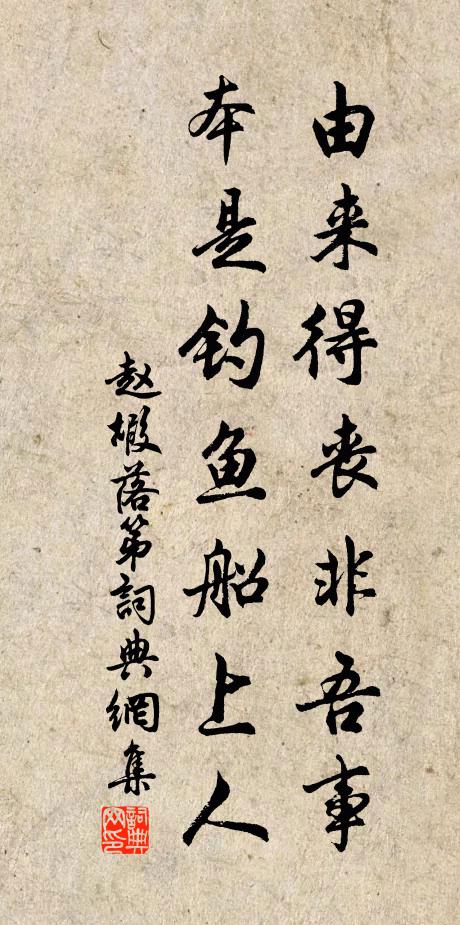 由来得丧非吾事
本是钓鱼船上人
赵嘏落第詞典網集
詞典网印